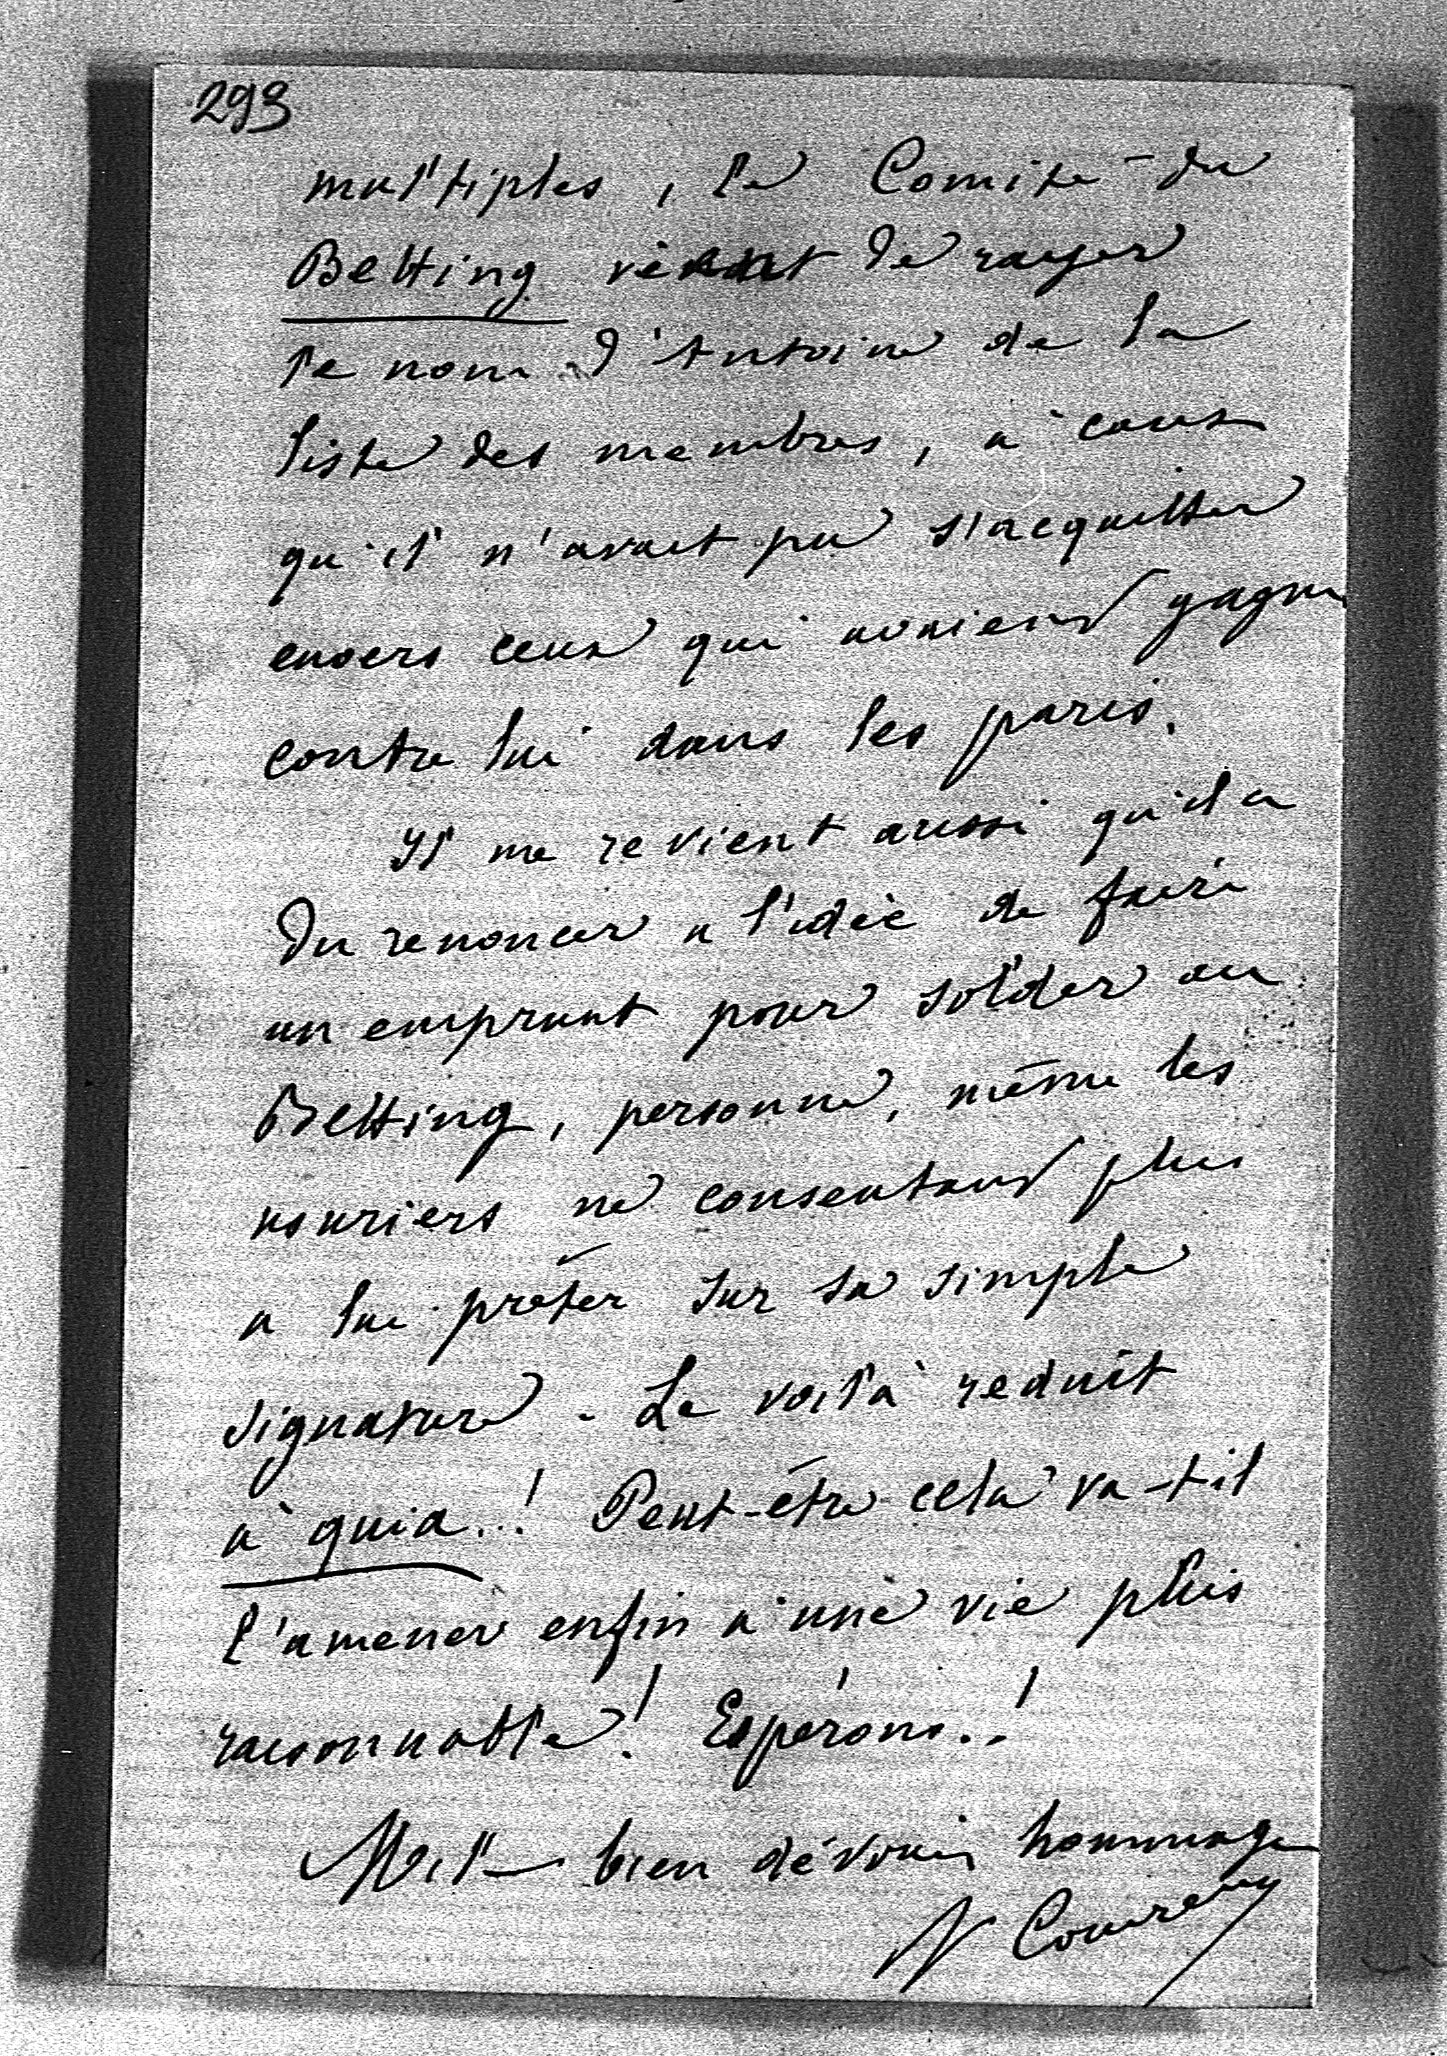 293
multiples, le Comité du
Betting vient de rayer
le nom d'Antoine de la
liste des membres, à cause
qu'il n'avait pu s'acquitter
envers ceux qui avaient gagné
contre lui dans les paris.
Il me revient aussi qu'il a
du renoncer a l'idée de faire
un emprunt pour solder au
Betting, personne, même les
usuriers ne consentant plus
a lui prêter sur sa simple
signature. Le voilà reduit
à quia..! Peut-être cela va-t-il
l'amener enfin à une vie plus
raisonnable! Espérons..!
Mille bien dévoués hommages